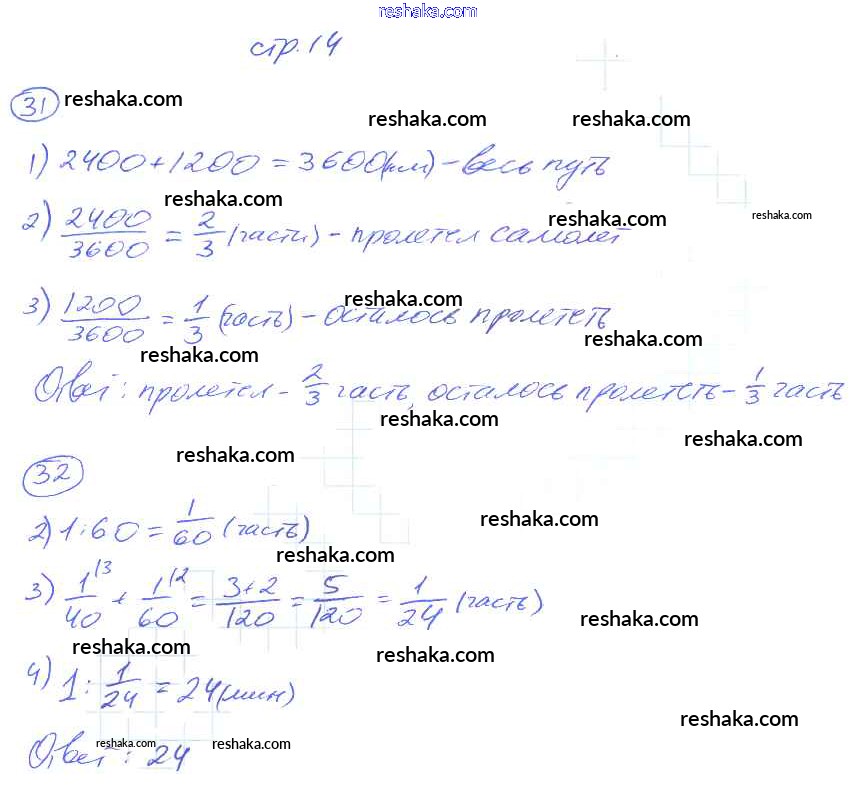 reshaka.com
стр. 14
31 reshaka.com
reshaka.com reshaka.com
1) 2400+1200 = 3600(км) - весь путь
reshaka.com reshaka.com reshaka.com
2) 2400/3600 = 2/3 (части) - пролетел самолет
3) 1200/3600 = 1/3 (часть) - осталось пролететь
reshaka.com
reshaka.com reshaka.com
Ответ: пролетел - 2/3 часть, осталось пролететь - 1/3 часть
reshaka.com reshaka.com
32 reshaka.com
reshaka.com
2) 1:60 = 1/60 (часть)
reshaka.com
3) 1/40 |3 + 1/60 |2 = 3+2/120 = 5/120 = 1/24 (часть)
reshaka.com
reshaka.com reshaka.com
4) 1 : 1/24 = 24 (мин)
reshaka.com
reshaka.com reshaka.com
Ответ: 24